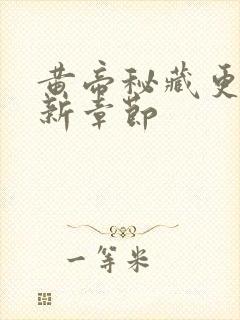 黄帝秘藏更
新章节
一等米